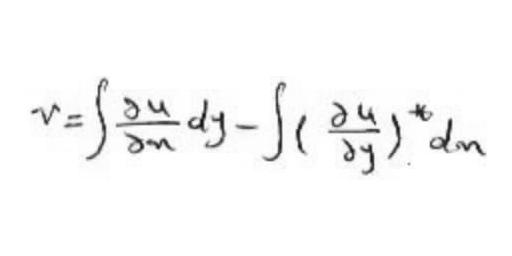 v = ∫ ∂u/∂x dy − ∫ ( ∂u/∂y )* dx